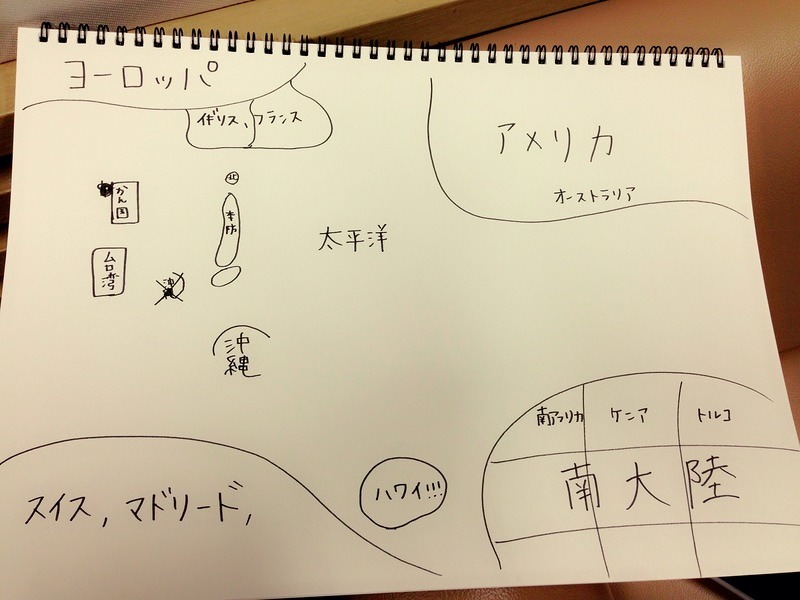 ヨーロッパ
イギリス、フランス
アメリカ
オーストラリア
かん国
北
本州
太平洋
台湾
沖縄
南アフリカ
ケニア
トルコ
南大陸
スイス, マドリード,
ハワイ!!!